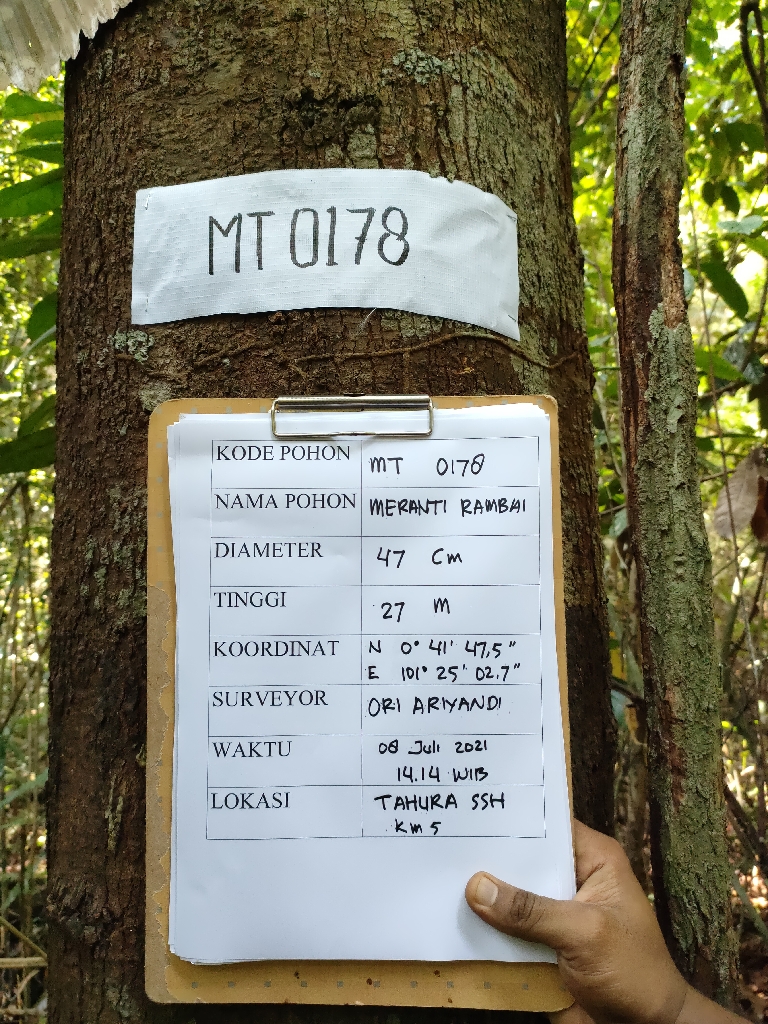 MT 0178
KODE POHON MT 0178
NAMA POHON MERANTI RAMBAI
DIAMETER 47 Cm
TINGGI 27 M
KOORDINAT N 0° 41' 47,5"
E 101° 25' 02.7"
SURVEYOR ORI ARIYANDI
WAKTU 08 Juli 2021
14.14 WIB
LOKASI TAHURA SSH
Km 5